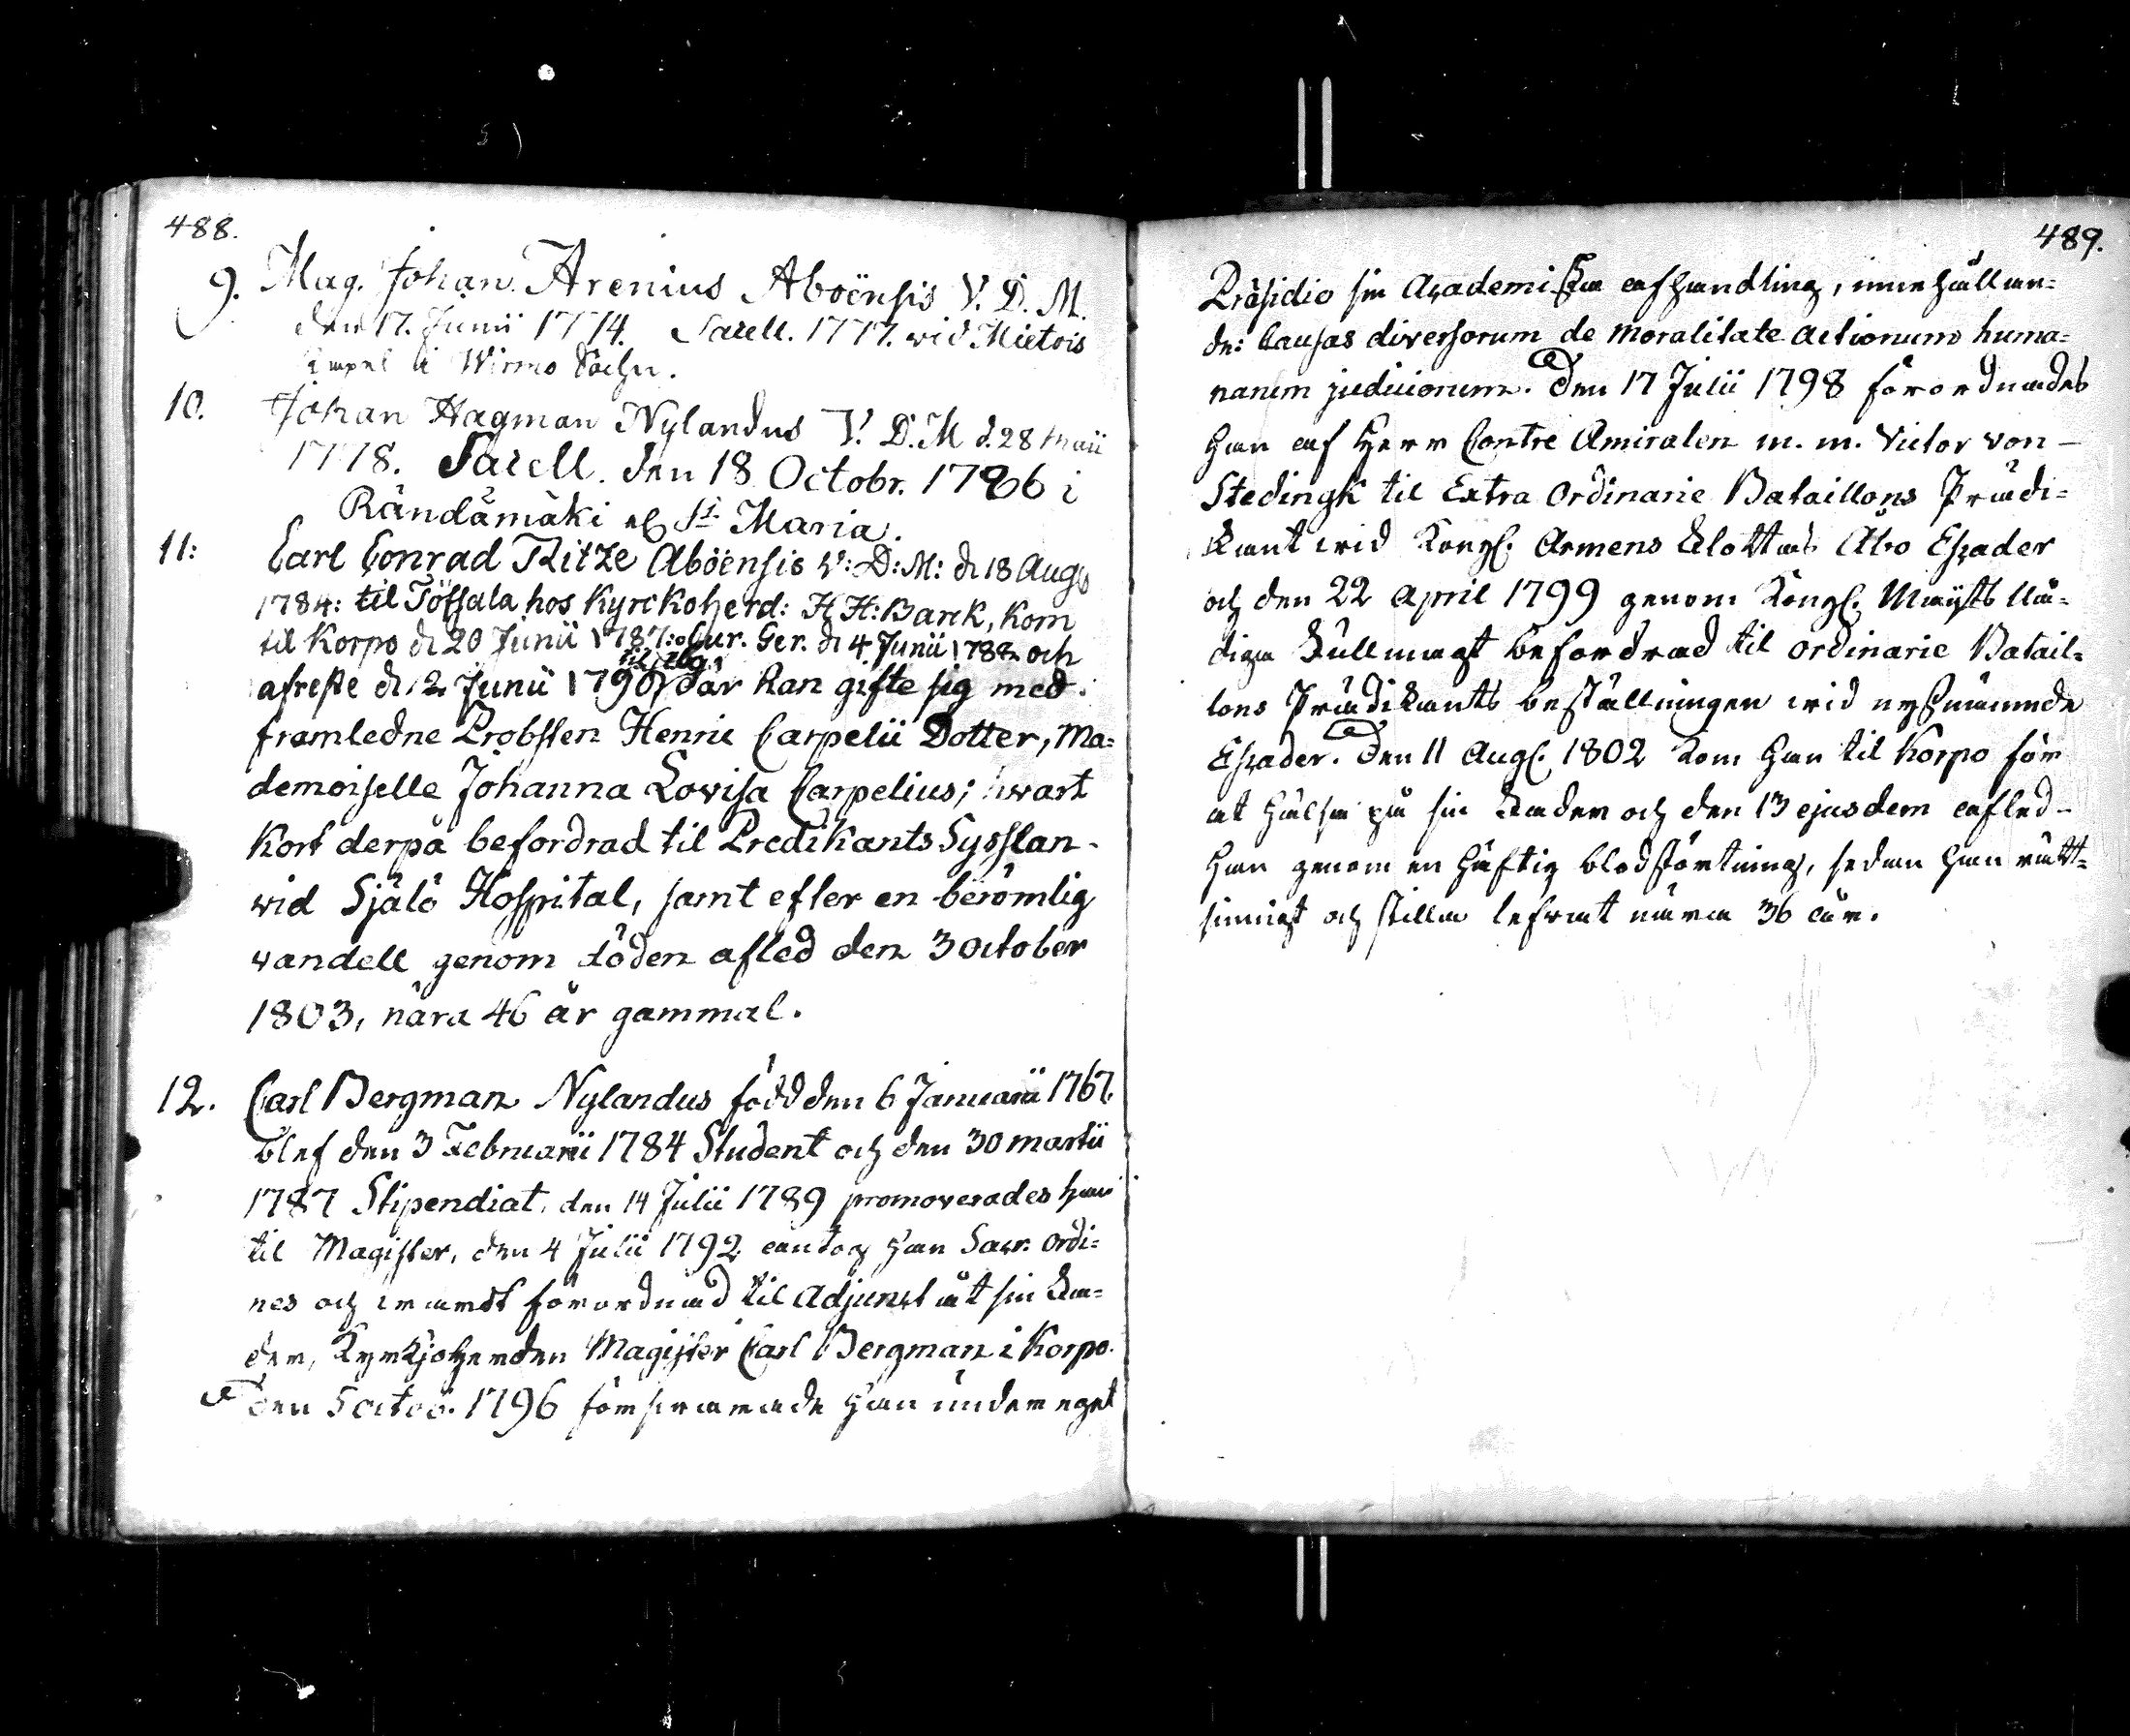 488.
9. Mag. Johan Arenius Aboënsis V. D. M.
den 17. Junii 1774. Sacell. 1777. wid Mietois
Capel i Wirmo Sochn.
10. Johan Hagman Nylandus V. D. M d. 28 Maii
1778. Sacell. den 18 Octobr. 1786 i
Rändämäki af St. Maria.
11: Carl Conrad Ritze Aboënsis V: D: M: d. 18 Aug.
1784: til Töfsala hos Kyrckoherd: H H: Barck, Kom
til Korpo d. 20 Junii 1787: Cur. Ger. d. 4 Junii 1788 och
til
afreste d. 2 Junii 1790, där han gifte sig med
framledne Probsten Henric Carpelii Dotter, Ma=
demoiselle Johanna Lovisa Carpelius; hwart
kort derpå befordrad til Predikants Sysslan
wid Själö Hospital, samt efter en berömlig
vandell genom döden afled den 3 October
1803, nära 46 år gammal.
12. Carl Bergman Nylandus född den 6 Januarii 1767.
blef den 3 Februarii 1784 Student och den 30 martii
1787 Stipendiat, den 14 Julii 1789 promoverades han
til Magister, den 4 Julii 1792 antog han Sacr. Ordi=
nes och wardt förordnad til Adjunct åt sin Fa=
der, Kyrkjoherden Magister Carl Bergman i Korpo.
Den 5 octob. 1796 försvarade han under eget
489.
Præsidio sin Academiska afhandling, innehållan=
de: Causas diversorum de moralitate actionum huma=
narum judiciorum. Den 17 Julii 1798 förordnades
han af Herr Contre Amiralen m. m. Victor von
Stedingk til Extra Ordinarie Bataillons Prædi=
kant wid Kongl. Armens Flottas Åbo Escader
och den 22 April 1799 genom Kongl. Majsts Nå=
diga Fullmagt befordrad til ordinarie Batail=
lons Prædikants beställningen wid nyssnämnde
Escader. Den 11 Aug. 1802 kom han til Korpo för
at hälsa på sin Fader och den 13 ejusdem afled
han genom en häftig blodstörtning, sedan han rätt=
sinnigt och stilla lefwat nära 36 år.